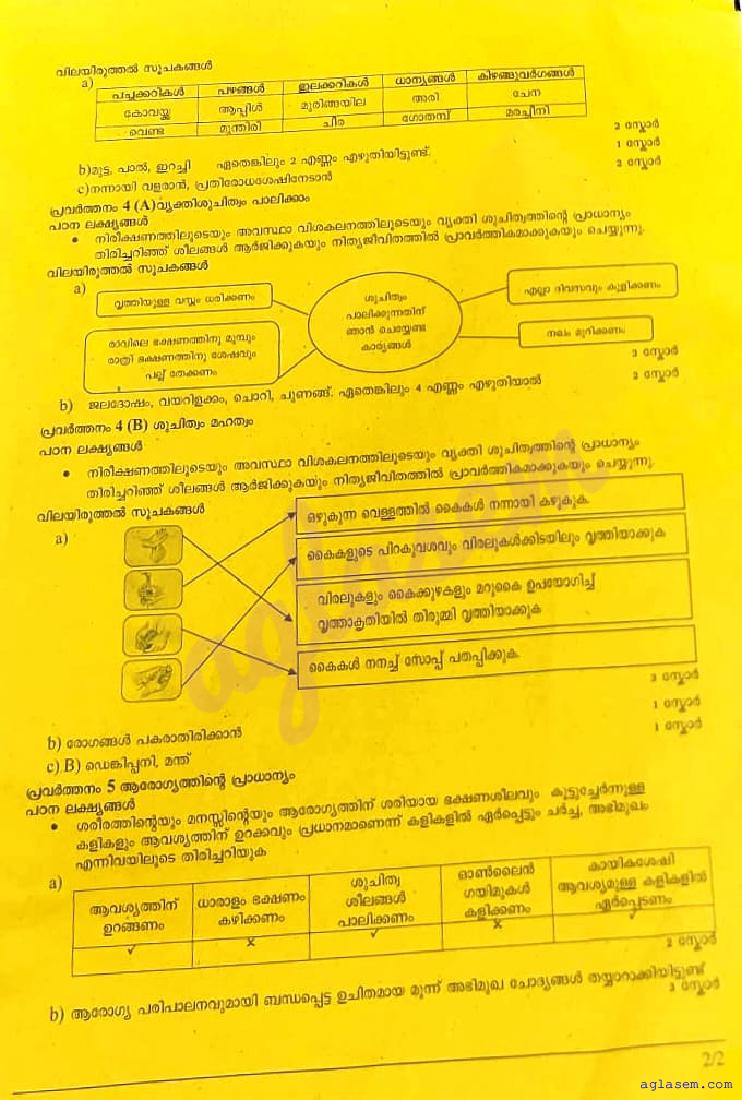 വിലയിരുത്തൽ സൂചകങ്ങൾ
a)
പച്ചക്കറികൾ പഴങ്ങൾ ഇലക്കറികൾ ധാന്യങ്ങൾ കിഴങ്ങുവർഗങ്ങൾ
കോവയ്ക്ക ആപ്പിൾ മുരിങ്ങയില അരി ചേന
വെണ്ട മുന്തിരി ചീര ഗോതമ്പ് മരച്ചീനി
2 സ്കോർ
b)മുട്ട, പാൽ, ഇറച്ചി ഏതെങ്കിലും 2 എണ്ണം എഴുതിയിട്ടുണ്ട്.
1 സ്കോർ
c)നന്നായി വളരാൻ, പ്രതിരോധശേഷിനേടാൻ
2 സ്കോർ
പ്രവർത്തനം 4 (A)വ്യക്തിശുചിത്വം പാലിക്കാം
പഠന ലക്ഷ്യങ്ങൾ
• നിരീക്ഷണത്തിലൂടെയും അവസ്ഥാ വിശകലനത്തിലൂടെയും വ്യക്തി ശുചിത്വത്തിന്റെ പ്രാധാന്യം
തിരിച്ചറിഞ്ഞ് ശീലങ്ങൾ ആർജിക്കുകയും നിത്യജീവിതത്തിൽ പ്രാവർത്തികമാക്കുകയും ചെയ്യുന്നു.
വിലയിരുത്തൽ സൂചകങ്ങൾ
a)
വൃത്തിയുള്ള വസ്ത്രം ധരിക്കണം
രാവിലെ ഭക്ഷണത്തിനു മുമ്പും
രാത്രി ഭക്ഷണത്തിനു ശേഷവും
പല്ല് തേക്കണം
ശുചിത്വം
പാലിക്കുന്നതിന്
ഞാൻ ചെയ്യേണ്ട
കാര്യങ്ങൾ
എല്ലാ ദിവസവും കുളിക്കണം
നഖം മുറിക്കണം
3 സ്കോർ
b) ജലദോഷം, വയറിളക്കം, ചൊറി, ചുണങ്ങ്. ഏതെങ്കിലും 4 എണ്ണം എഴുതിയാൽ
2 സ്കോർ
പ്രവർത്തനം 4 (B) ശുചിത്വം മഹത്വം
പഠന ലക്ഷ്യങ്ങൾ
• നിരീക്ഷണത്തിലൂടെയും അവസ്ഥാ വിശകലനത്തിലൂടെയും വ്യക്തി ശുചിത്വത്തിന്റെ പ്രാധാന്യം
തിരിച്ചറിഞ്ഞ് ശീലങ്ങൾ ആർജിക്കുകയും നിത്യജീവിതത്തിൽ പ്രാവർത്തികമാക്കുകയും ചെയ്യുന്നു.
വിലയിരുത്തൽ സൂചകങ്ങൾ
a)
ഒഴുകുന്ന വെള്ളത്തിൽ കൈകൾ നന്നായി കഴുകുക
കൈകളുടെ പിറകുവശവും വിരലുകൾക്കിടയിലും വൃത്തിയാക്കുക
വിരലുകളും കൈക്കുഴകളും മറുകൈ ഉപയോഗിച്ച്
വൃത്താകൃതിയിൽ തിരുമ്മി വൃത്തിയാക്കുക
കൈകൾ നനച്ച് സോപ്പ് പതപ്പിക്കുക
3 സ്കോർ
b) രോഗങ്ങൾ പകരാതിരിക്കാൻ
1 സ്കോർ
c) B) ഡെങ്കിപ്പനി, മന്ത്
1 സ്കോർ
പ്രവർത്തനം 5 ആരോഗ്യത്തിന്റെ പ്രാധാന്യം
പഠന ലക്ഷ്യങ്ങൾ
• ശരീരത്തിന്റെയും മനസ്സിന്റെയും ആരോഗ്യത്തിന് ശരിയായ ഭക്ഷണശീലവും കൂട്ടുച്ചേർന്നുള്ള
കളികളും ആവശ്യത്തിന് ഉറക്കവും പ്രധാനമാണെന്ന് കളികളിൽ ഏർപ്പെട്ടും ചർച്ച, അഭിമുഖം
എന്നിവയിലൂടെ തിരിച്ചറിയുക
a)
ആവശ്യത്തിന്
ഉറങ്ങണം
ധാരാളം ഭക്ഷണം
കഴിക്കണം
ശുചിത്വ
ശീലങ്ങൾ
പാലിക്കണം
ഓൺലൈൻ
ഗയിമുകൾ
കളിക്കണം
കായികശേഷി
ആവശ്യമുള്ള കളികളിൽ
ഏർപ്പെടണം
✓ x ✓ x ✓
2 സ്കോർ
b) ആരോഗ്യ പരിപാലനവുമായി ബന്ധപ്പെട്ട ഉചിതമായ മൂന്ന് അഭിമുഖ ചോദ്യങ്ങൾ തയ്യാറാക്കിയിട്ടുണ്ട്
3 സ്കോർ
2/2
aglasem.com